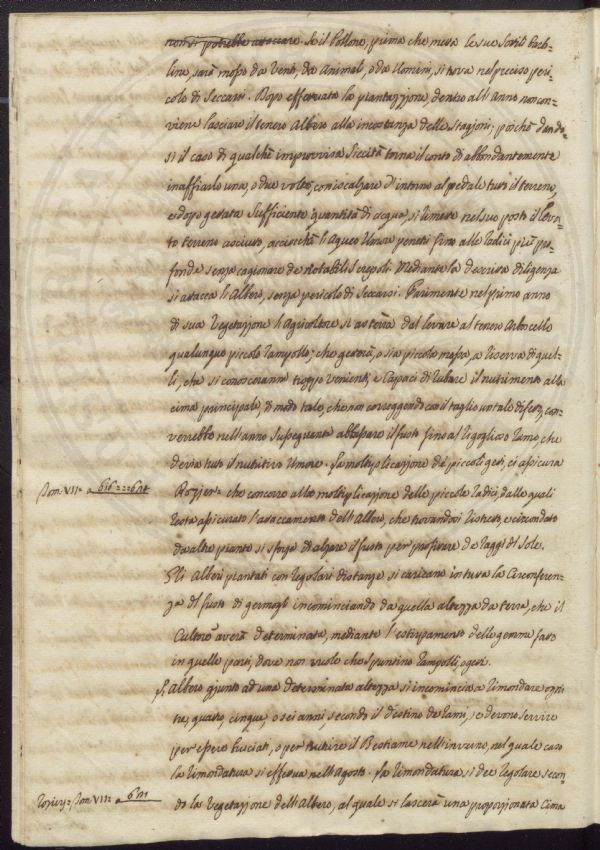 non si potrebbe attaccare. Se il Pollone, prima che metta le sue sottili barbo-
line, sarà mosso da Venti, da Animali, o da Uomini, si trova nel preciso peri-
colo di seccarsi. Dopo effettuata la piantazzione, dentro all'Anno non con-
viene lasciare il tenero Albero alla incostanza delle Stagioni; poichè dando-
si il caso di qualche improvvisa Siccità torna il conto di abbondantemente
inaffiarlo una, o due volte, con iscalzare d'intorno al pedale tutto il terreno,
e dopo gettata sufficiente quantità di acqua, si rimette nel suo posto il leva-
to terreno asciutto, acciocchè l'Aqueo Umore penetri fino alle Radici più pro-
fonde senza cagionare de notabili screpoli. Mediante la descritta diligenza
si attacca l'Albero, senza pericolo di Seccarsi. Parimente nel primo anno
di sua Vegetazzione l'Agricoltore si asterrà dal levare al tenero Arboscello
qualunque piccolo Rampollo, che getterà, o sia piccola messa, a riserva di quel-
li, che si conosceranno troppo venienti, e Capaci di rubare il nutrimento alla
cima principale, di modo tale, che non correggendo con il taglio un tal disordine, con-
verrebbe nell'anno susseguente abbassare il fusto fino al rigoglioso Ramo, che
devia tutto il nutritivo Umore. La moltiplicazzione de piccoli getti, ci assicura
Tom. VII. a
Rozier che concorre alla moltiplicazzione delle piccole Radici, dalle quali
resta assicurato l'attaccamento dell'Albero, che trovandosi ristretto, e circondato
da altre piante si sforza di alzare il fusto per profittare de Raggi del Sole.
Gli Alberi piantati con regolari distanze si caricano in tutta la Circonferen-
za del fusto di germogli incominciando da quella altezza da terra, che il
Cultore averà determinata, mediante l'estirpamento delle gemme fatto
in quelle parti, dove non vuole che spuntino Rampolli, o getti.
L'albero giunto ad una determinata altezza si incomincia a rimondare ogni
tre, quattro, cinque, o sei anni, secondo il destino de Rami, se devono servire
per essere bruciati, o per nutrire il Bestiame nell'inverno, nel quale caso
la rimondatura si effettua nell'Agosto. La rimondatura, si dee regolare secon-
Rozier Tom. VII. a
do la Vegetazzione dell'Albero, al quale si lascerà una proporzionata Cima